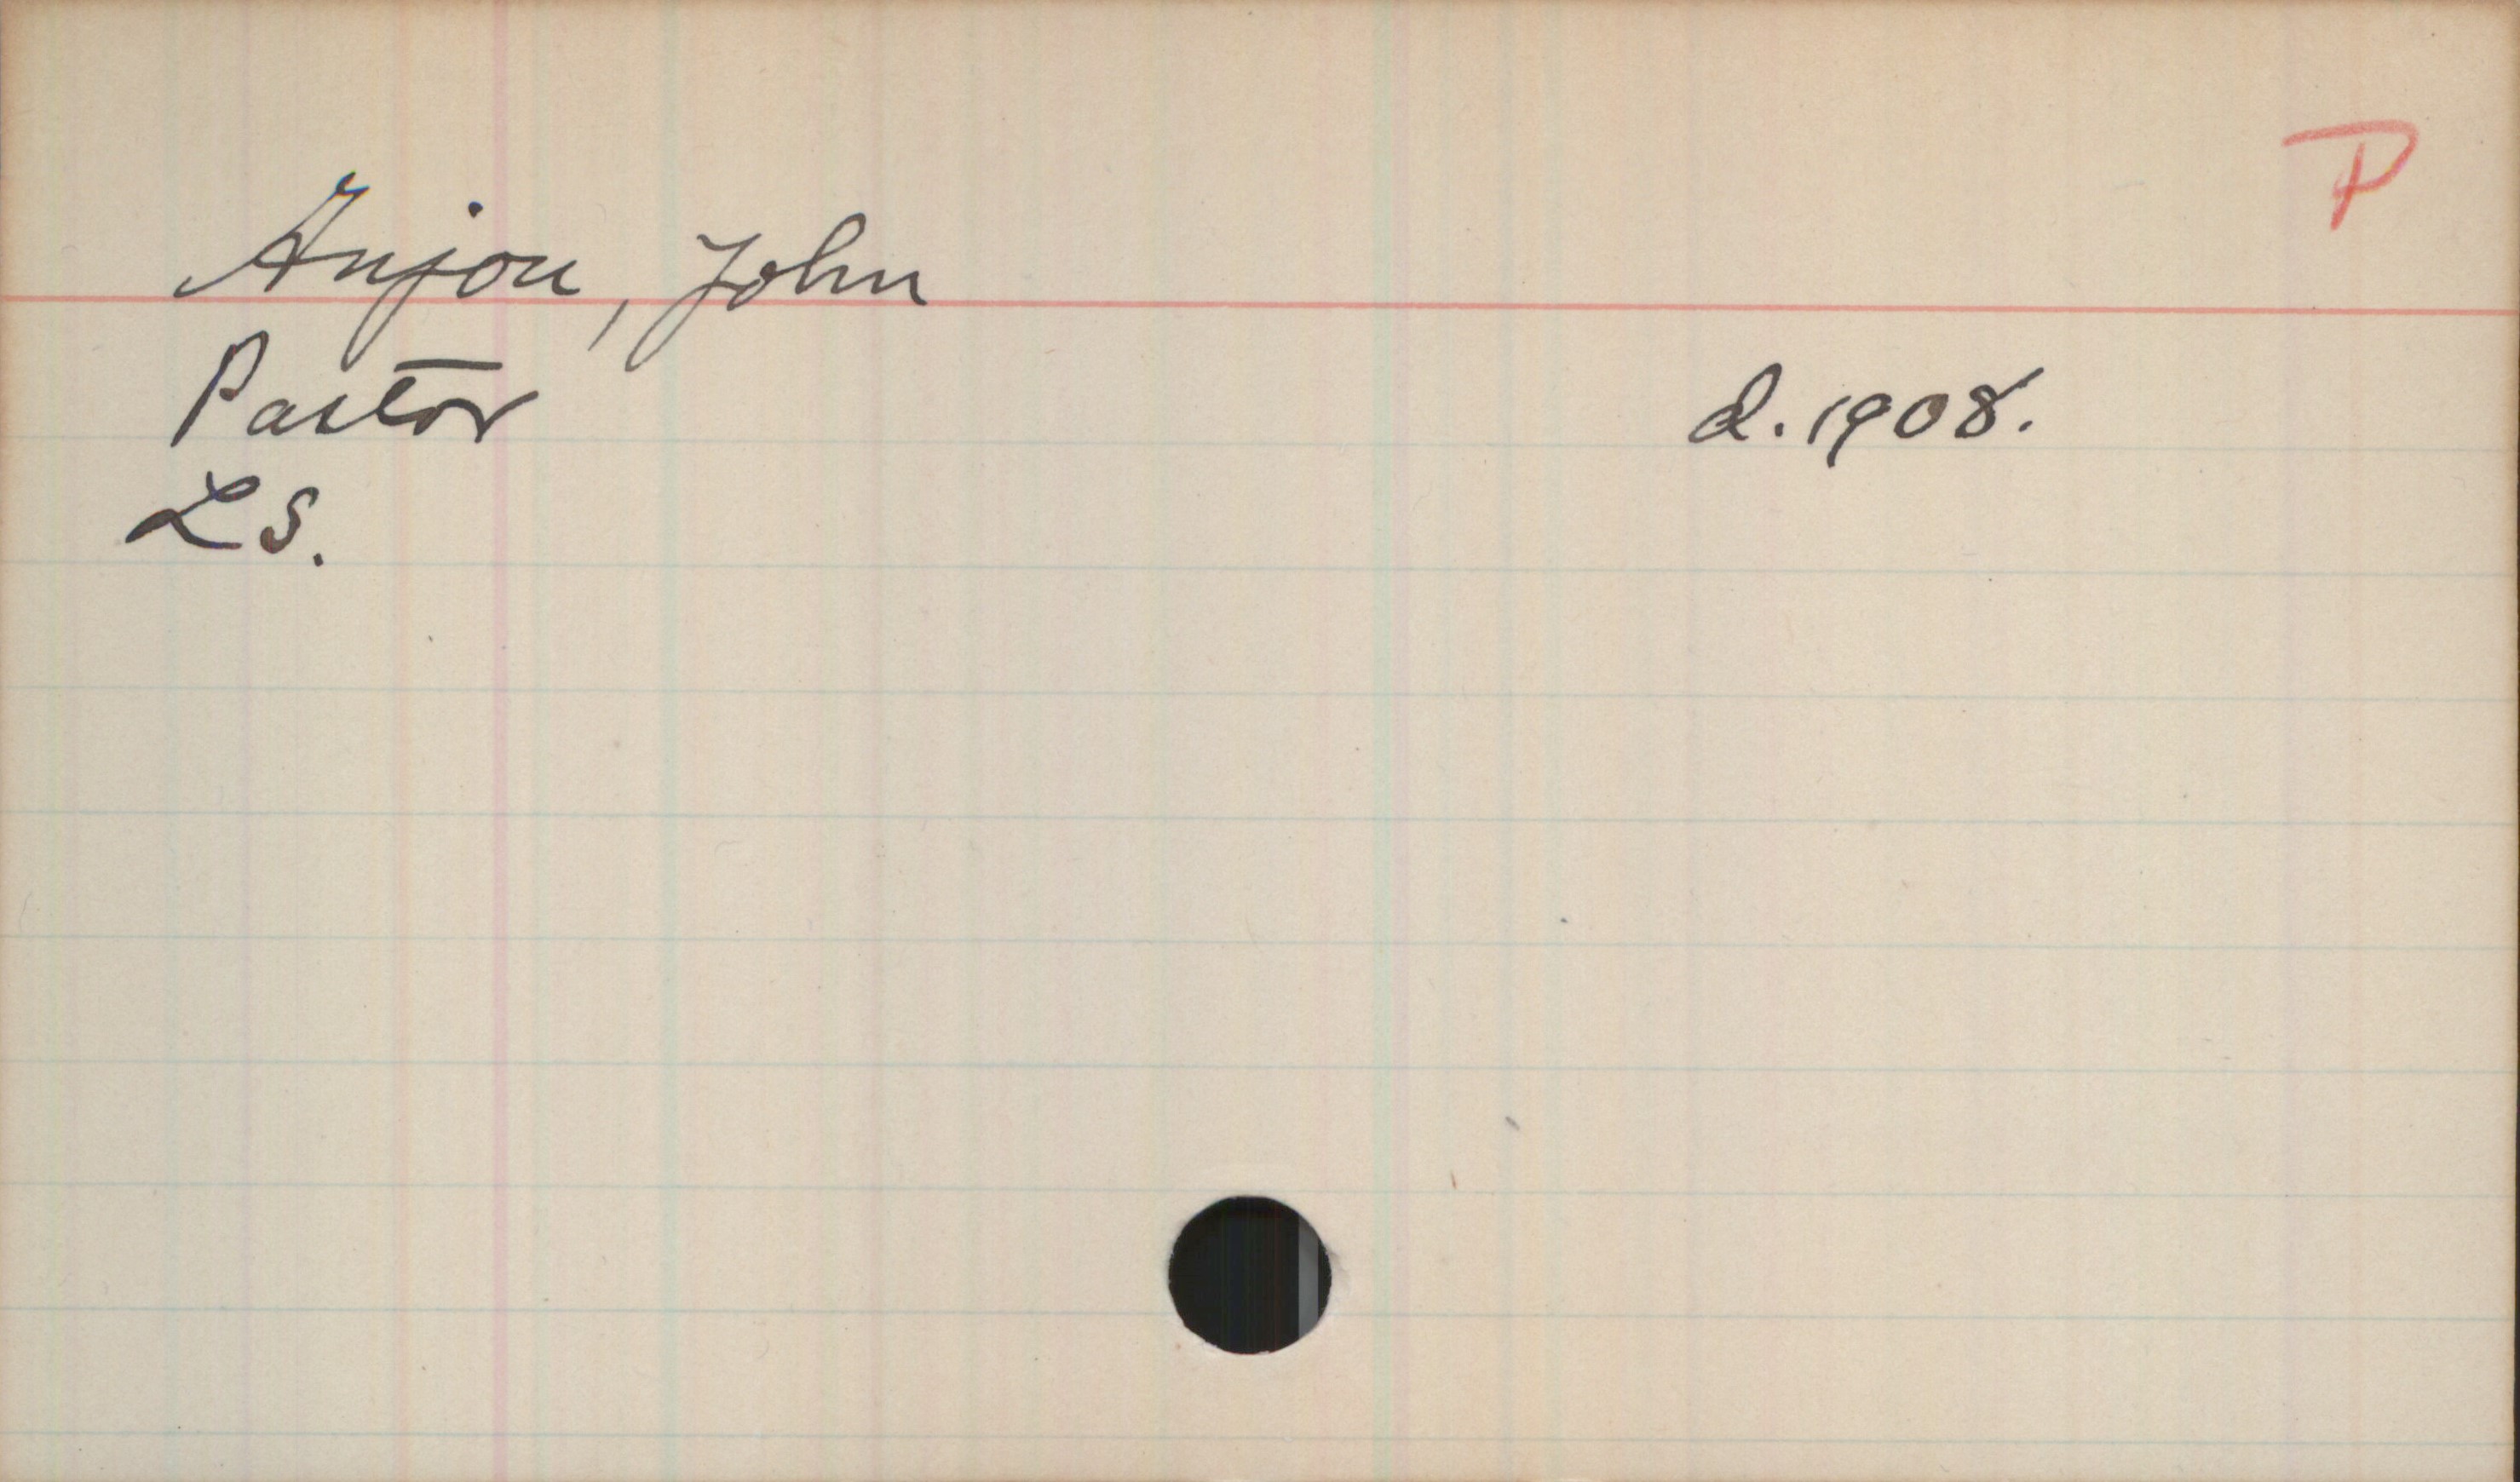 P
Anjou, John
Pastor d. 1908.
LS.